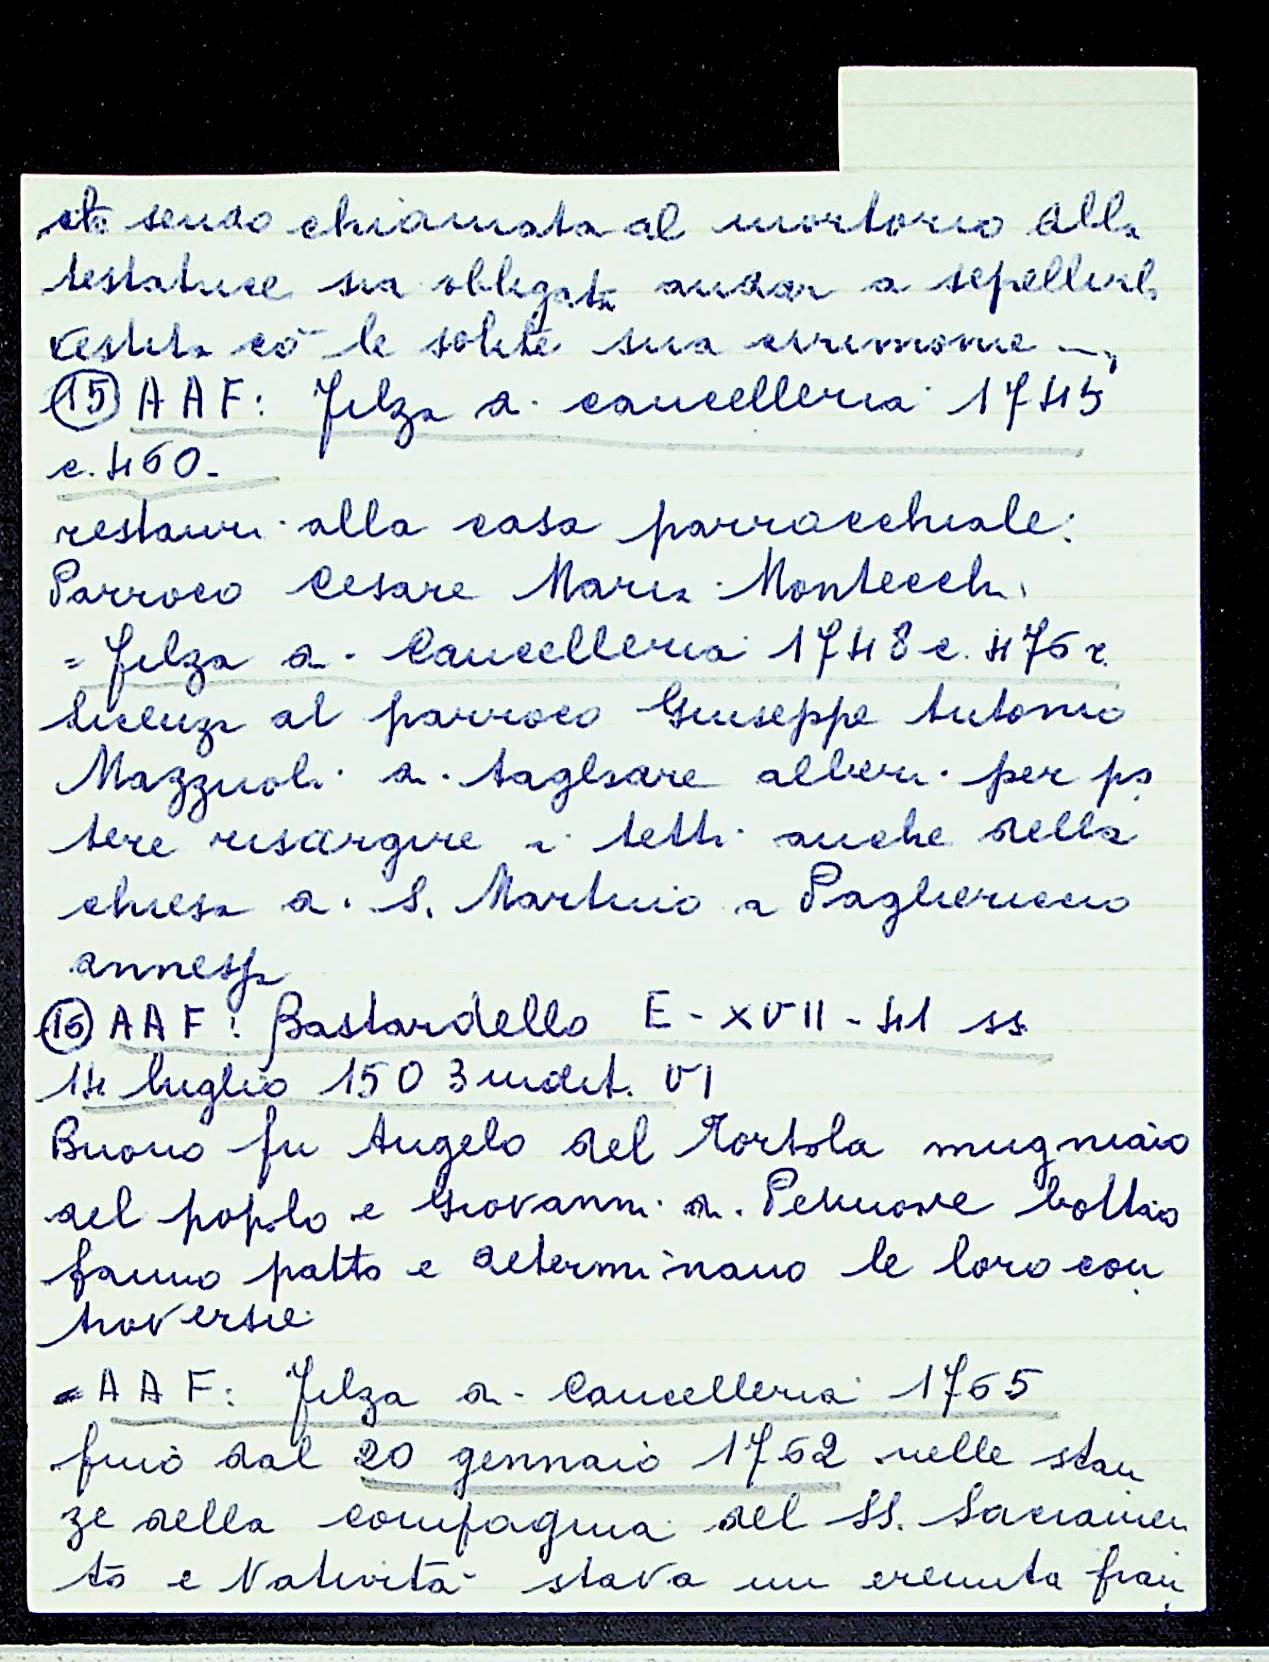 ete sendo chiamata al mortorio della
testatrice sia obligata andar a sepellirla
vestita cō le solite sua cirimonie —
(15) AAF: Filza di cancelleria 1745
c. 460-
restauri alla casa parrocchiale:
Parroco Cesare Maria Montecchi
= Filza di Cancelleria 1748 c. 476 r.
licenza al parroco Giuseppe Antonio
Mazzuoli di tagliare alberi per po
tere risarcire i tetti anche della
chiesa di S. Martino a Pagliericcio
annessa
(16) AAF: Bastardello E-XVII-41 ss
14 luglio 1503 indit. VI
Buono fu Angelo del Tortola mugniaio
del popolo e Giovanni di bottaio
fanno patto e determinano le loro con
troversie
= AAF: Filza di Cancelleria 1765
fino dal 20 gennaio 1762 nelle stan
ze della compagnia del SS. Sacramen
to e Natività stava un eremita fran